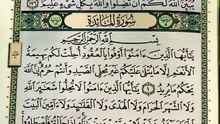 يُبَيِّنُ ٱللَّهُ لَكُمْ أَن تَضِلُّوا۟ وَٱللَّهُ بِكُلِّ شَىْءٍ عَلِيمٌ
سُورَةُ المَائِدَةِ
بِسْمِ ٱللَّهِ ٱلرَّحْمَٰنِ ٱلرَّحِيمِ
يَٰٓأَيُّهَا ٱلَّذِينَ ءَامَنُوٓا۟ أَوْفُوا۟ بِٱلْعُقُودِ أُحِلَّتْ لَكُم بَهِيمَةُ
ٱلْأَنْعَٰمِ إِلَّا مَا يُتْلَىٰ عَلَيْكُمْ غَيْرَ مُحِلِّى ٱلصَّيْدِ وَأَنتُمْ حُرُمٌ إِنَّ ٱللَّهَ
يَحْكُمُ مَا يُرِيدُ ١ يَٰٓأَيُّهَا ٱلَّذِينَ ءَامَنُوا۟ لَا تُحِلُّوا۟ شَعَٰٓئِرَ ٱللَّهِ
وَلَا ٱلشَّهْرَ ٱلْحَرَامَ وَلَا ٱلْهَدْىَ وَلَا ٱلْقَلَٰٓئِدَ وَلَآ ءَآمِّينَ ٱلْبَيْتَ